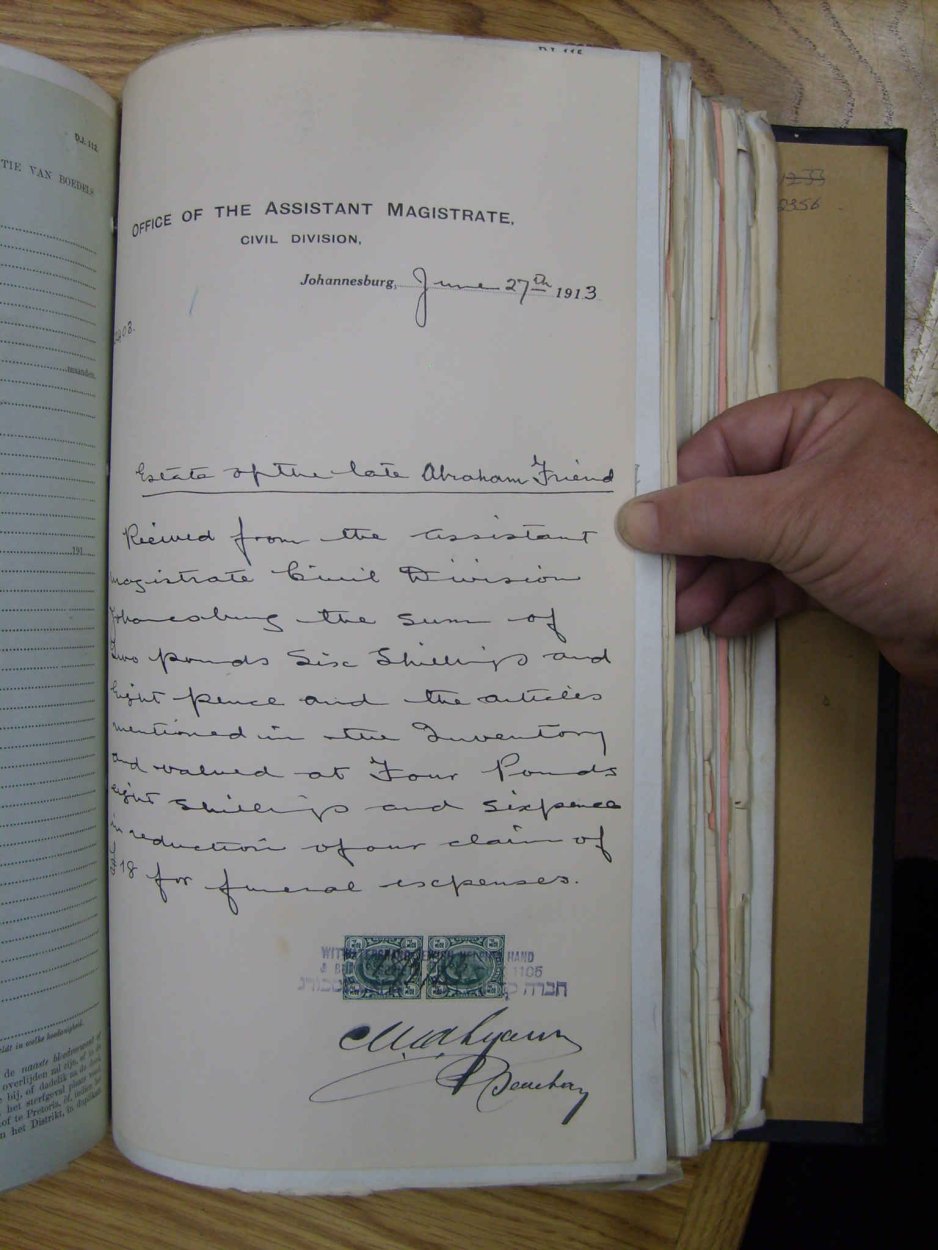 DJ. 112.
TIE VAN BOEDELS
maanden.
191
de naaste bloedverwant of
overlijden zal zijn, of in
bij, of dadelik na de dood
het sterfgeval plaats
of te Pretoria, of, indien het
het Distrikt, in duplikaat
1233
2356
OFFICE OF THE ASSISTANT MAGISTRATE,
CIVIL DIVISION,
Johannesburg, June 27th 1913
Estate of the late Abraham Friend
Received from the Assistant
Magistrate Civil Division
Johannesburg the sum of
Two pounds Six Shillings and
Eight pence and the articles
mentioned in the Inventory
and valued at Four Pounds
Eight Shillings and Sixpence
in reduction of our claim of
£18 for funeral expenses.
WITWATERSRAND JEWISH HELPING HAND
& 1105
חברה